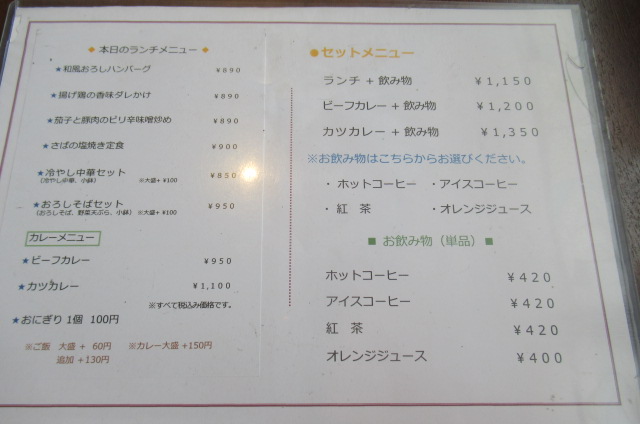 ◆ 本日のランチメニュー ◆
★和風おろしハンバーグ ￥890
★揚げ鶏の香味ダレかけ ￥890
★茄子と豚肉のピリ辛味噌炒め ￥890
★さばの塩焼き定食 ￥900
★冷やし中華セット ￥850
(冷やし中華、小鉢) ※大盛+ ¥100
★おろしそばセット ￥950
(おろしそば、野菜天ぷら、小鉢) ※大盛+ ¥100
カレーメニュー
★ビーフカレー ￥950
★カツカレー ￥1,100
※すべて税込み価格です。
★おにぎり 1個 100円
※ご飯 大盛 + 60円 ※カレー大盛 +150円
追加 +130円
●セットメニュー
ランチ + 飲み物 ￥1,150
ビーフカレー + 飲み物 ￥1,200
カツカレー + 飲み物 ￥1,350
※お飲み物はこちらからお選びください。
・ ホットコーヒー ・ アイスコーヒー
・ 紅 茶 ・ オレンジジュース
■ お飲み物（単品）■
ホットコーヒー ￥420
アイスコーヒー ￥420
紅 茶 ￥420
オレンジジュース ￥400